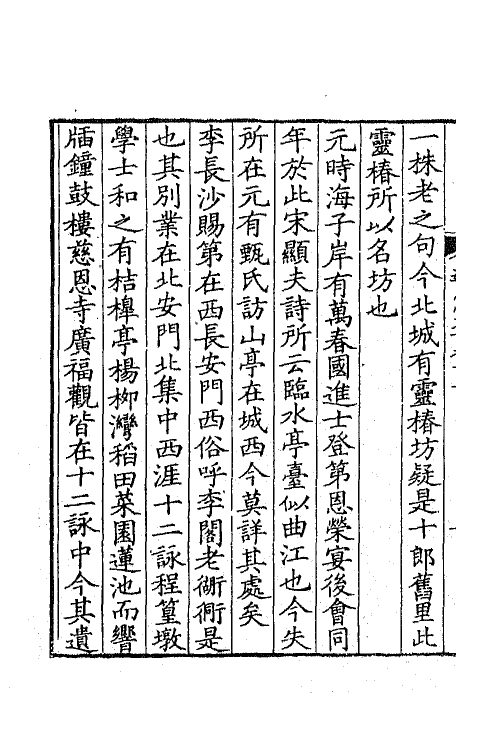 一株老之句今北城有靈椿坊疑是十郎舊里此
靈椿所以名坊也
元時海子岸有萬春園進士登第恩榮宴後會同
年於此宋顯夫詩所云臨水亭臺似曲江也今失
所在元有甄氏訪山亭在城西今莫詳其處矣
李長沙賜第在西長安門西俗呼李閣老衚衕是
也其別業在北安門北集中西涯十二詠程篁墩
學士和之有桔橰亭楊柳灣稻田菜園蓮池而響
牐鐘鼓樓慈恩寺廣福觀皆在十二詠中今其遺